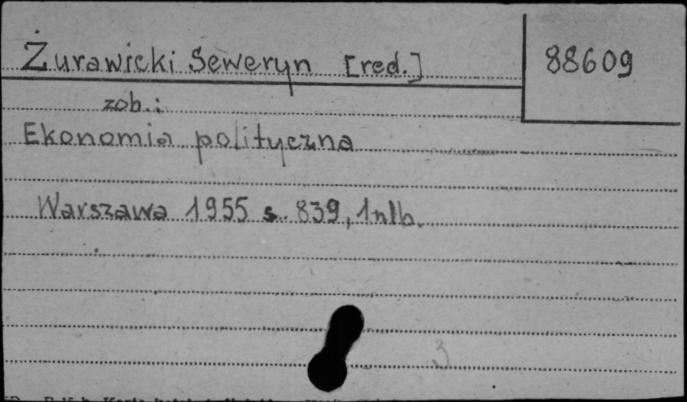 Żurawicki Seweryn [red.]
88609
zob.:
Ekonomia polityczna
Warszawa 1955 s. 839, 1 nlb.
3